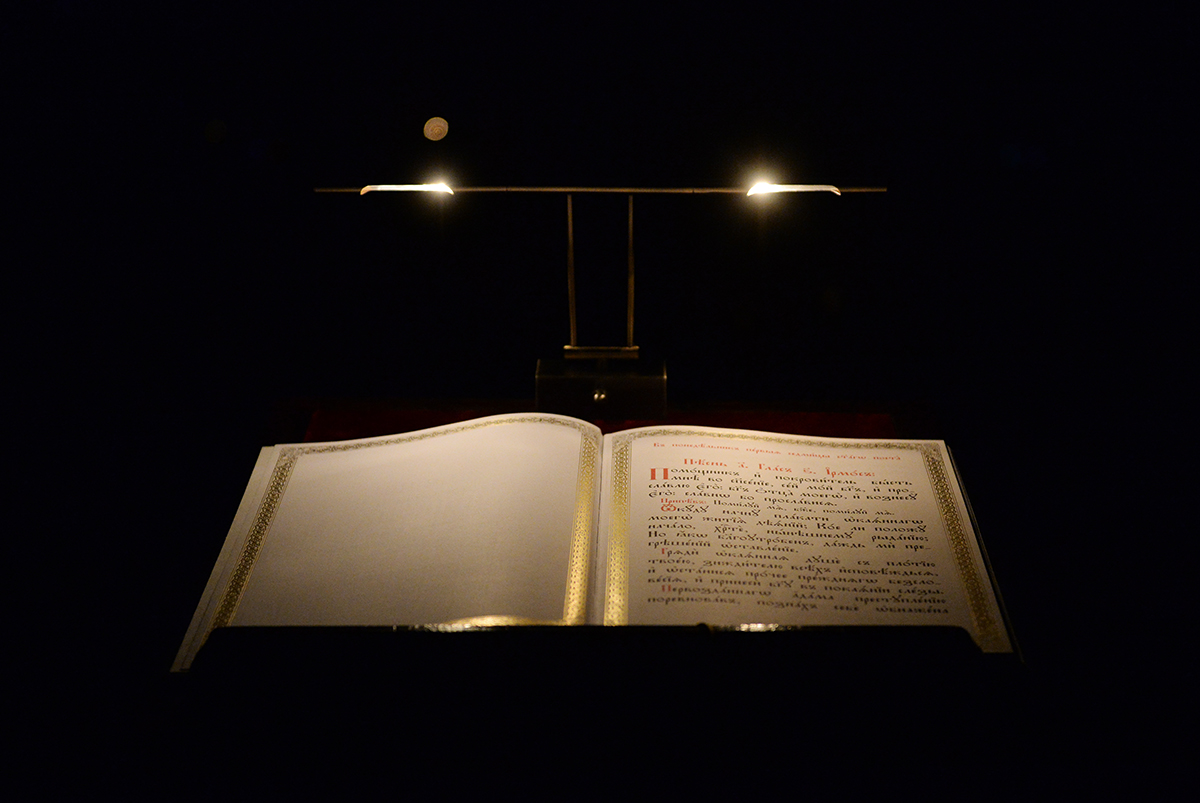 Въ понедѣ́льникъ пе́рвыѧ седми́цы вели́кагѡ поста̀
Пѣ́снь а҃. Гла́съ ѕ҃. І҆рмо́съ:
Помо́щникъ и҆ покрови́тель бы́сть
мнѣ̀ во спⷭ҇е́нїе, се́й мо́й бг҃ъ, и҆ про-
сла́влю є҆го̀: бг҃ъ ѻ҆тца̀ моегѡ̀, и҆ вознесꙋ̀
є҆го̀: сла́внѡ бо просла́висѧ.
Припѣ́въ: Поми́лꙋй мѧ̀, бж҃е, поми́лꙋй мѧ̀.
Ѿкꙋ́дꙋ начнꙋ̀ пла́кати ѡ҆каѧ́ннагѡ
моегѡ̀ житїѧ̀ дѣѧ́нїй; ко́е ли положꙋ̀
нача́ло, хрⷭ҇тѐ, ны́нѣшнемꙋ рыда́нїю;
но ꙗ҆́кѡ бл҃гоꙋтро́бенъ, да́ждь мѝ пре-
грѣше́нїй ѡ҆ставле́нїе.
Грѧдѝ ѡ҆каѧ́ннаѧ дꙋшѐ съ пло́тїю
твое́ю, зижди́телю всѣ́хъ и҆сповѣ́ждьсѧ,
и҆ ѡ҆ста́нисѧ про́чее пре́жднѧгѡ безсло-
ве́сїѧ, и҆ принесѝ бг҃ꙋ въ покаѧ́нїи сле́зы.
Первозда́ннаго а҆да́ма престꙋпле́нїю
поревнова́въ, позна́хъ себѐ ѡ҆бнаже́на